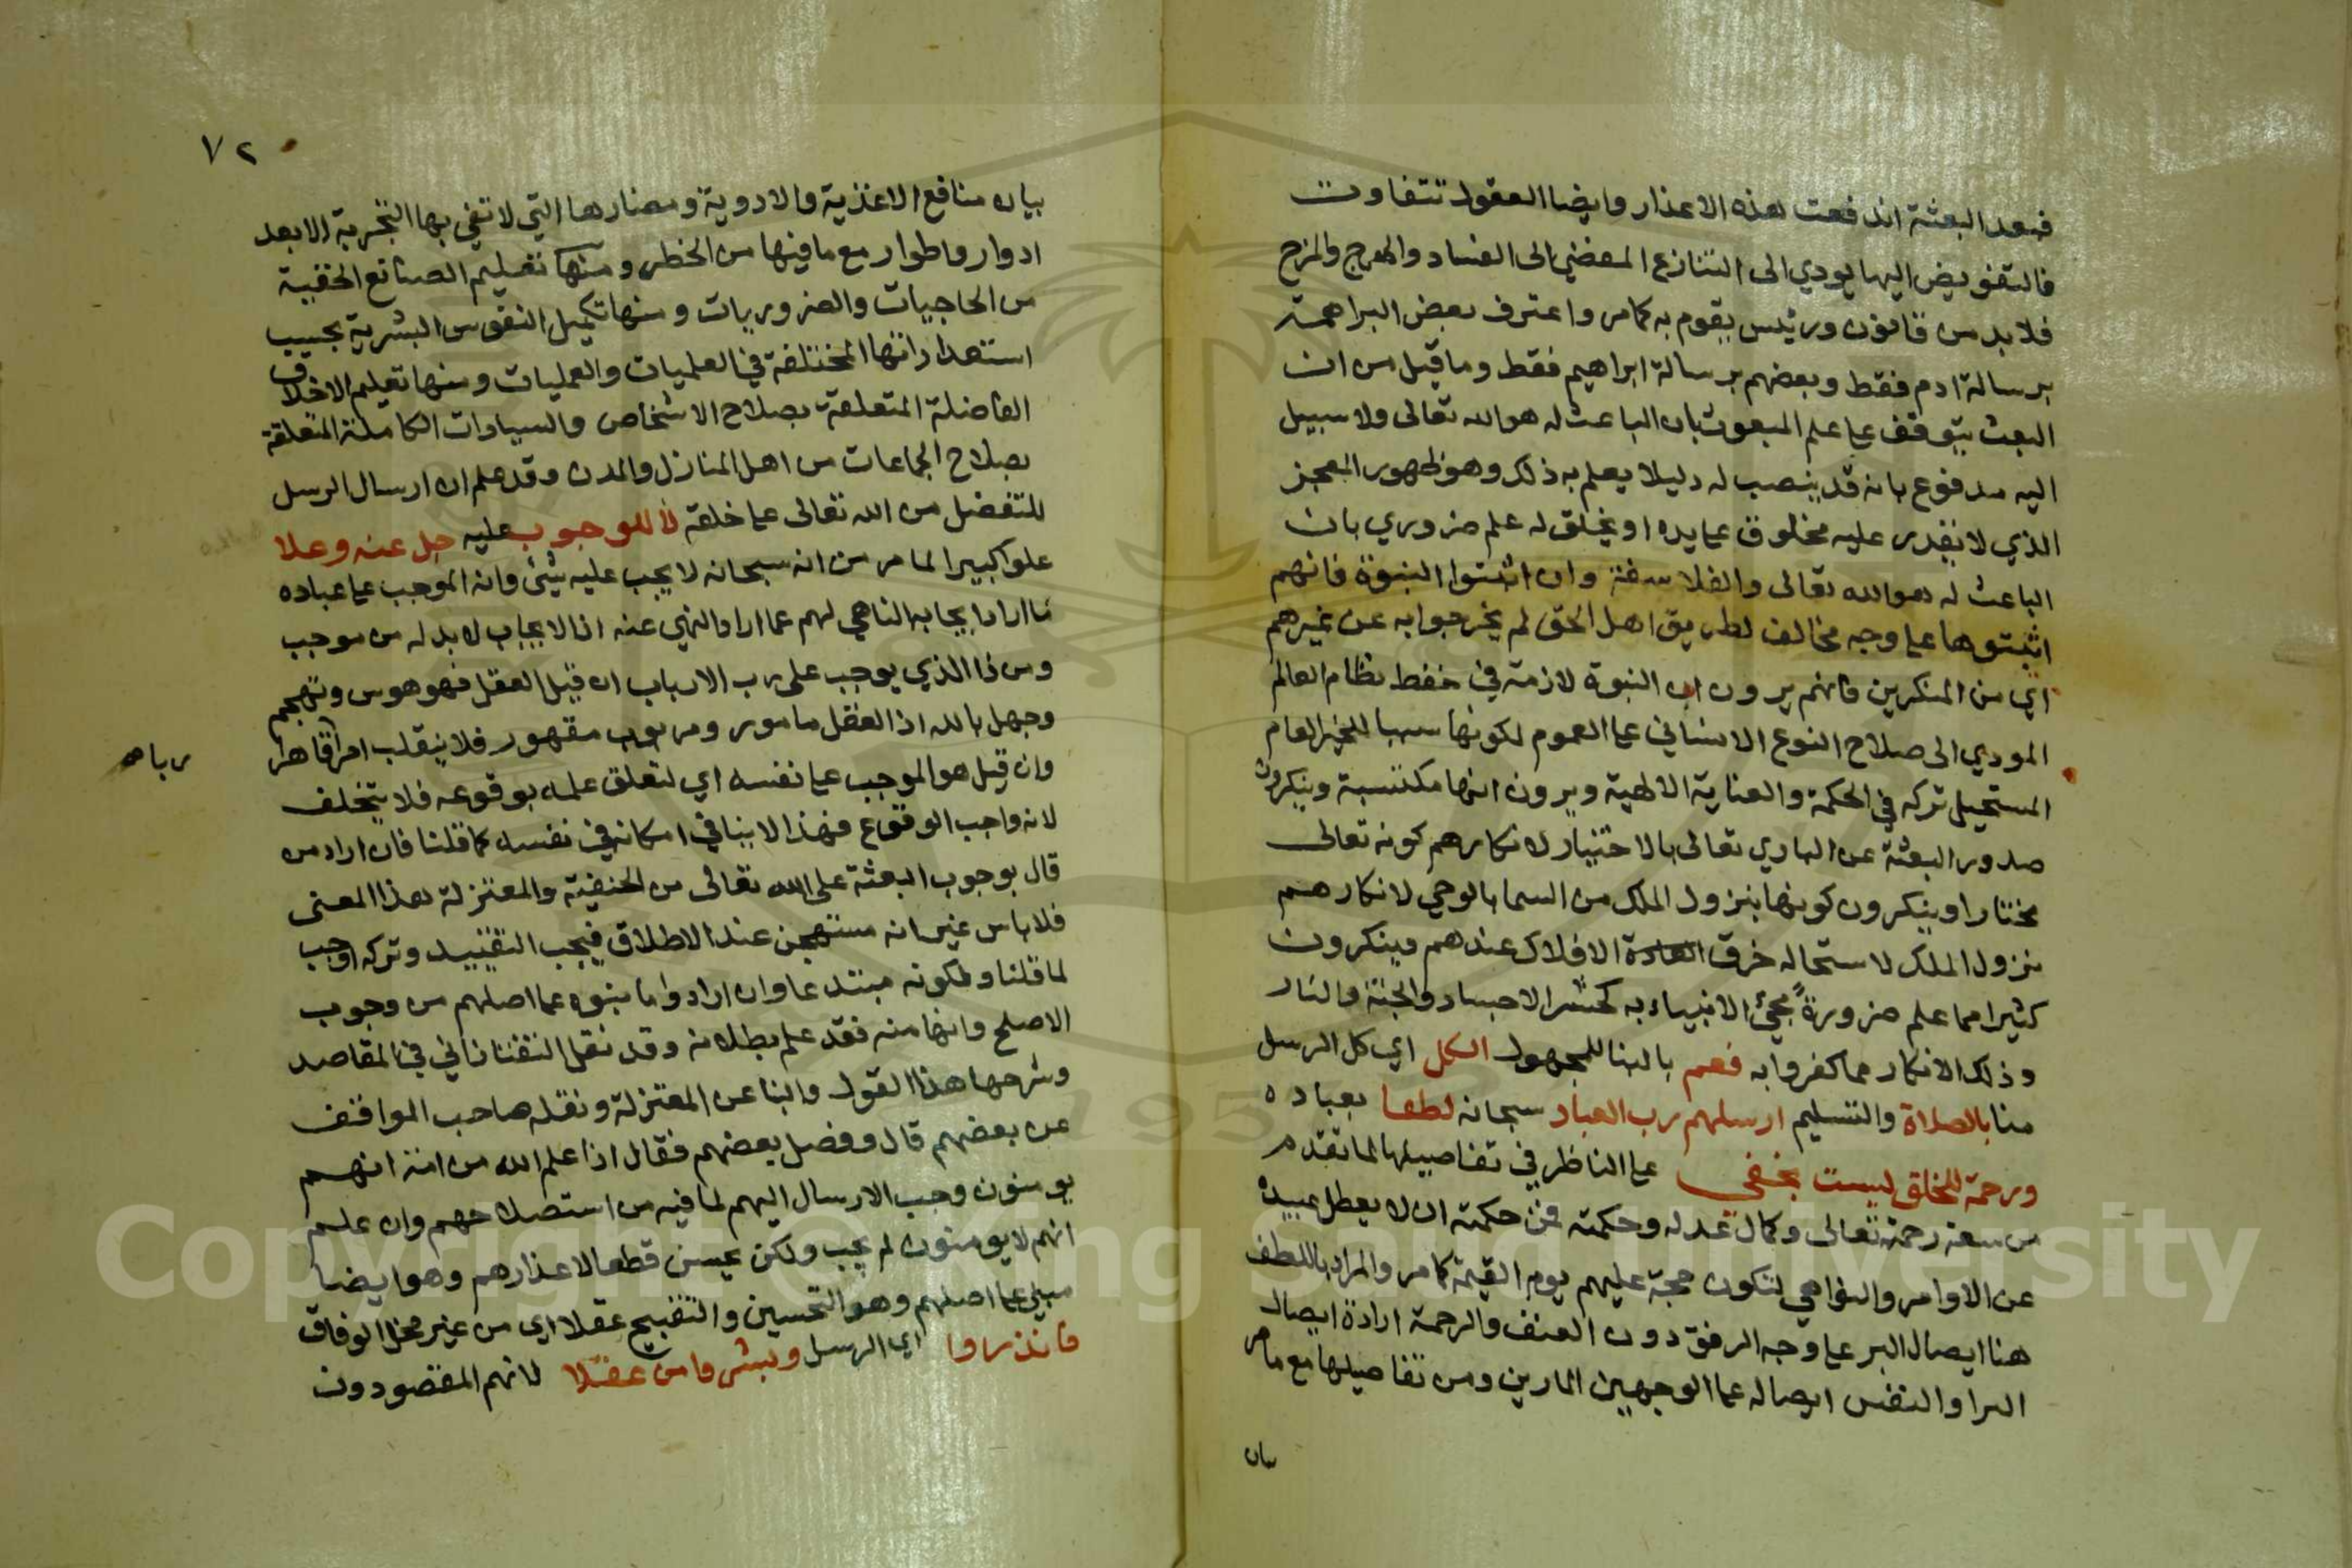 فبعد البعثة اندفعت هذه الاعذار وايضا العقول تتفاوت
فالتفويض اليها يودي الى التنازع المفضي الى الفساد والهرج والمرج
فلا بد من قانون ورئيس يقوم به كما مر واعترف بعض البراهمة
برسالة ادم فقط وبعضهم برسالة ابراهيم فقط وما قيل من ان
البعث يتوقف على علم المبعوث بان الباعث له هو الله تعالى ولا سبيل
اليه مدفوع بانه قد ينصب له دليلا يعلم به ذلك وهو ظهور المعجز
الذي لا يقدر عليه مخلوق على يده او يخلق له علم ضروري بان
الباعث له هو الله تعالى والفلاسفة وان اثبتوا النبوة فانهم
اثبتوها على وجه مخالف لطريق اهل الحق لم يخرجوا به عن غيرهم
اي من المنكرين فانهم يرون ان النبوة لازمة في حفظ نظام العالم
المودي الى صلاح النوع الانساني على العموم لكونها سببا للخير العام
المستحيل تركه في الحكمة والعناية الالهية ويرون انها مكتسبة وينكرون
صدور البعثة عن الباري تعالى بالاختيار لانكارهم كونه تعالى
مختارا وينكرون كونها بنزول الملك من السما بالوحي لانكارهم
نزول الملك لاستحالة خرق الافلاك عندهم وينكرون
كثيرا مما علم ضرورة مجيئ الانبياء به كحشر الاجساد والجنة والنار
وذلك الانكار مما كفروا به فعم بالبنا للمجهول الكل اي كل الرسل
منا بالصلاة والتسليم ارسلهم رب العباد سبحانه لطفا بعباده
ورحمة للخلق ليست بخفي على الناظر في تفاصيلها لما تقدم
من سعة رحمته تعالى وكمال عدله وحكمته فمن حكمته ان لا يعطل عبيده
عن الاوامر والنواهي لتكون حجة عليهم يوم القيمة كما مر والمراد باللطف
هنا ايصال البر على وجه الرفق دون العنف والرحمة ارادة ايصال
البر او النفس ايصاله على الوجهين المارين ومن تفاصيلها مع ما مر
بيان
٧٢
بيان منافع الاغذية والادوية ومضارها التي لا تفي بها التجربة الا بعد
ادوار واطوار مع ما فيها من الخطر ومنها تعليم الصنائع الخفية
من الحاجيات والضروريات ومنها تكميل النفوس البشرية بحسب
استعداداتها المختلفة في العلميات والعمليات ومنها تعليم الاخلاق
الفاضلة المتعلقة بصلاح الاشخاص والسياسات الكاملة المتعلقة
بصلاح الجماعات من اهل المنازل والمدن وقد علم ان ارسال الرسل
للتفضل من الله تعالى على خلقه لا للوجوب عليه جل عنه وعلا
علوا كبيرا لما مر من انه سبحانه لا يجب عليه شيئ وانه الموجب على عباده
ما اراد ايجابه الناهي لهم عما اراد النهي عنه اذ الايجاب لا بد له من موجب
ومن ذا الذي يوجب على رب الارباب ان قيل العقل فهو هوس وتهجم
وجهل بالله اذ العقل مامور ومربوب مقهور فلا ينقلب امرا قاهرا
وان قيل هو الموجب على نفسه اي لتعلق علمه بوقوعه فلا يتخلف
لانه واجب الوقوع فهذا لا ينافي امكانه في نفسه كما قلنا فان اراد من
قال بوجوب البعثة على الله تعالى من الحنفية والمعتزلة هذا المعنى
فلا باس غير انه مستهجن عند الاطلاق فيجب التقييد وتركه اوجب
لما قلنا ولكونه مبتدعا وان ارادوا ما بنوه على اصلهم من وجوب
الاصلح وانها منه فقد علم بطلانه وقد نقل التفتازاني في المقاصد
وشرحها هذا القول والبنا عن المعتزلة ونقله صاحب المواقف
عن بعضهم قال وفصل بعضهم فقال اذا علم الله من امة انهم
يومنون وجب الارسال اليهم لما فيه من استصلاحهم وان علم
انهم لا يومنون لم يجب ولكن يحسن قطعا لاعذارهم وهو ايضا
مبني على اصلهم وهو التحسين والتقبيح عقلا اي من غير محل الوفاق
فانذروا اي الرسل وبشروا من عقلا لانهم المقصودون
Copyright © King Saud University